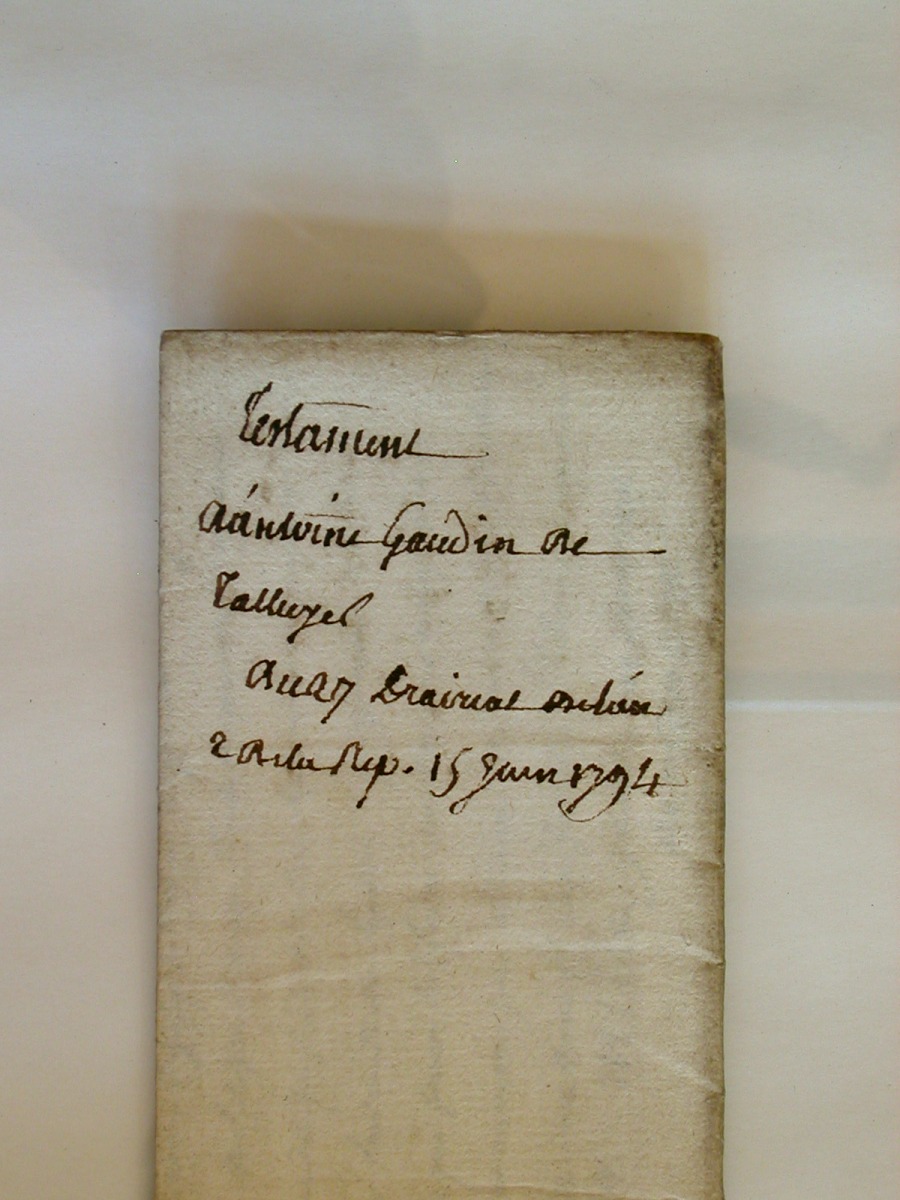 Testament
d'antoine Gaudin de
Talluyes
du 27 Prairial de l'an
2 de la Rep. 15 Juin 1794